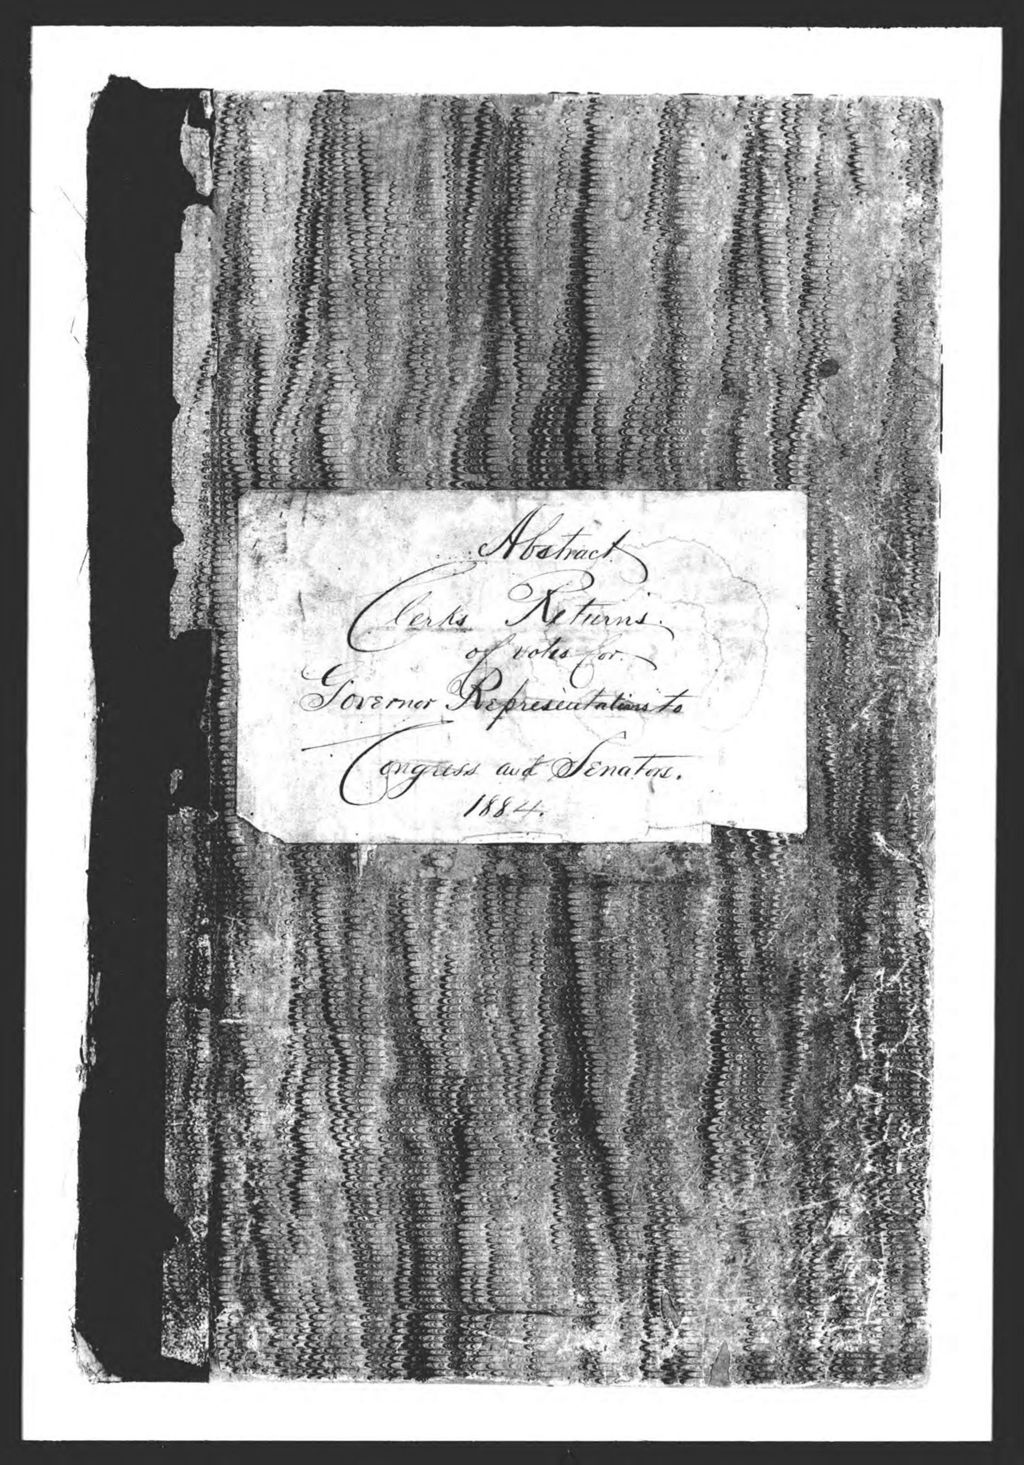 Abstract
Clerks Returns.
of votes for.
Governor Representatives to
Congress and Senators.
1884.